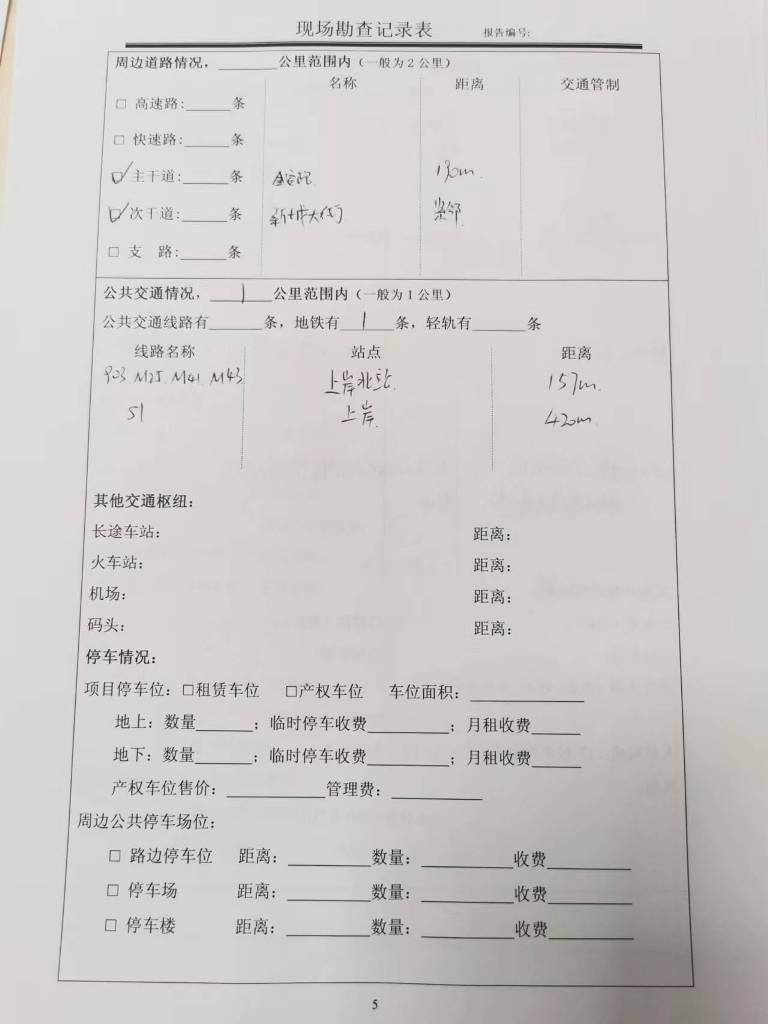 现场勘查记录表 报告编号:
周边道路情况，______公里范围内（一般为2公里）
名称 距离 交通管制
□ 高速路:_____条
□ 快速路:_____条
☑ 主干道:_____条 130m.
☑ 次干道:_____条 新城大街 紧邻
□ 支 路:_____条
公共交通情况，__1__公里范围内（一般为1公里）
公共交通线路有______条，地铁有__1__条，轻轨有______条
线路名称 站点 距离
903 M25. M41. M43 上岸北站. 157m.
S1 上岸. 420m.
其他交通枢纽：
长途车站： 距离：
火车站： 距离：
机场： 距离：
码头： 距离：
停车情况：
项目停车位：□租赁车位 □产权车位 车位面积：____________
地上：数量______；临时停车收费_________；月租收费_____
地下：数量______；临时停车收费_________；月租收费_____
产权车位售价：___________管理费：__________
周边公共停车场位：
□ 路边停车位 距离：_________数量：__________收费_________
□ 停车场 距离：_________数量：__________收费_________
□ 停车楼 距离：_________数量：__________收费_________
5